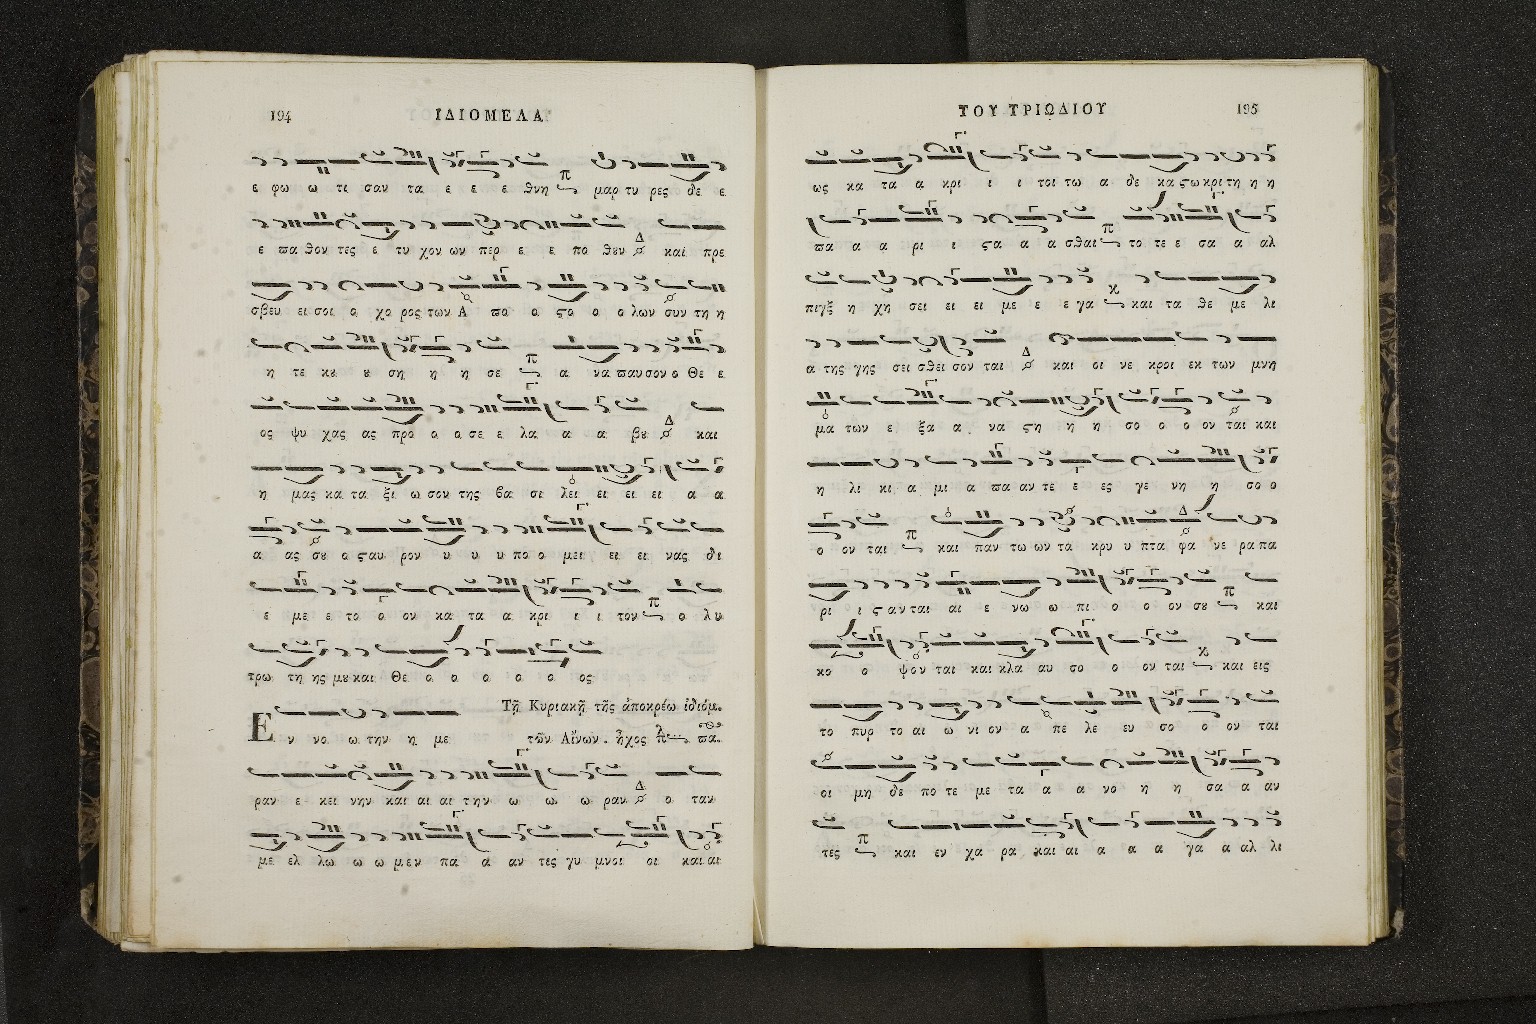 194 ΙΔΙΟΜΕΛΑ
ε φω ω τι σαν τα ε ε ε θνη π μαρ τυ ρες δε ε
ε πα θον τες ε τυ χον ων περ ε ε πο θουν Δ και πρε
σβευ ει σοι ο χο ρος των Α πο ο ςο ο ο λων συν τη η
η τε κου ου ση η η σε π α να παυσον ο Θε ε
ος ψυ χας ας προ ο ο σε ε λα α α βου Δ και
η μας κα τα ξι ω σον της βα σι λει ει ει ει α α
α ας σου ο ςαυ ρον υ υ υ πο ο μει ει ει νας δι
ε με ε το ο ον κα τα α κρι ι ι τον π ο λυ
τρω τη ης μου και Θε ο ο ο ο ο ος
Τῇ Κυριακῇ τῆς ἀποκρέω ἰδιόμ.
Ε ν νο ω την η με τῶν Αἴνων. ἦχος πα.
ραν ε κει νην και αι αι την ω ω ω ραν Δ ο ταν
με ελ λω ω ω μεν πα α αν τες γυ μνοι οι και αι
ΤΟΥ ΤΡΙΩΔΙΟΥ 195
ως κα τα α κρι ι ι τοι τω α δε κα ςω κρι τη η η
πα α α ρι ι ςα α α σθαι π το τε ε σα α αλ
πιγξ η χη σει ει ει με ε ε γα κ και τα θε με λι
α της γης σει σθει σον ται Δ και οι νε κροι εκ των μνη
μα των ε ξα α να ςη η η σο ο ο ον ται και
η λι κι α μι α πα αν τε ε ες γε νη η σο ο
ο ον ται π και παν τω ων τα κρυ υ πτα φα νε ρα πα
ρι ι ςαν ται αι ε νω ω πι ο ο ον σου π και
κο ο ψον ται και κλα αυ σο ο ον ται κ και εις
το πυρ το αι ω νι ον α πε λε ευ σο ο ον ται
οι μη δε πο τε με τα α α νο η η σα α αν
τες π και εν χα ρα και αι α α α γα α αλ λι